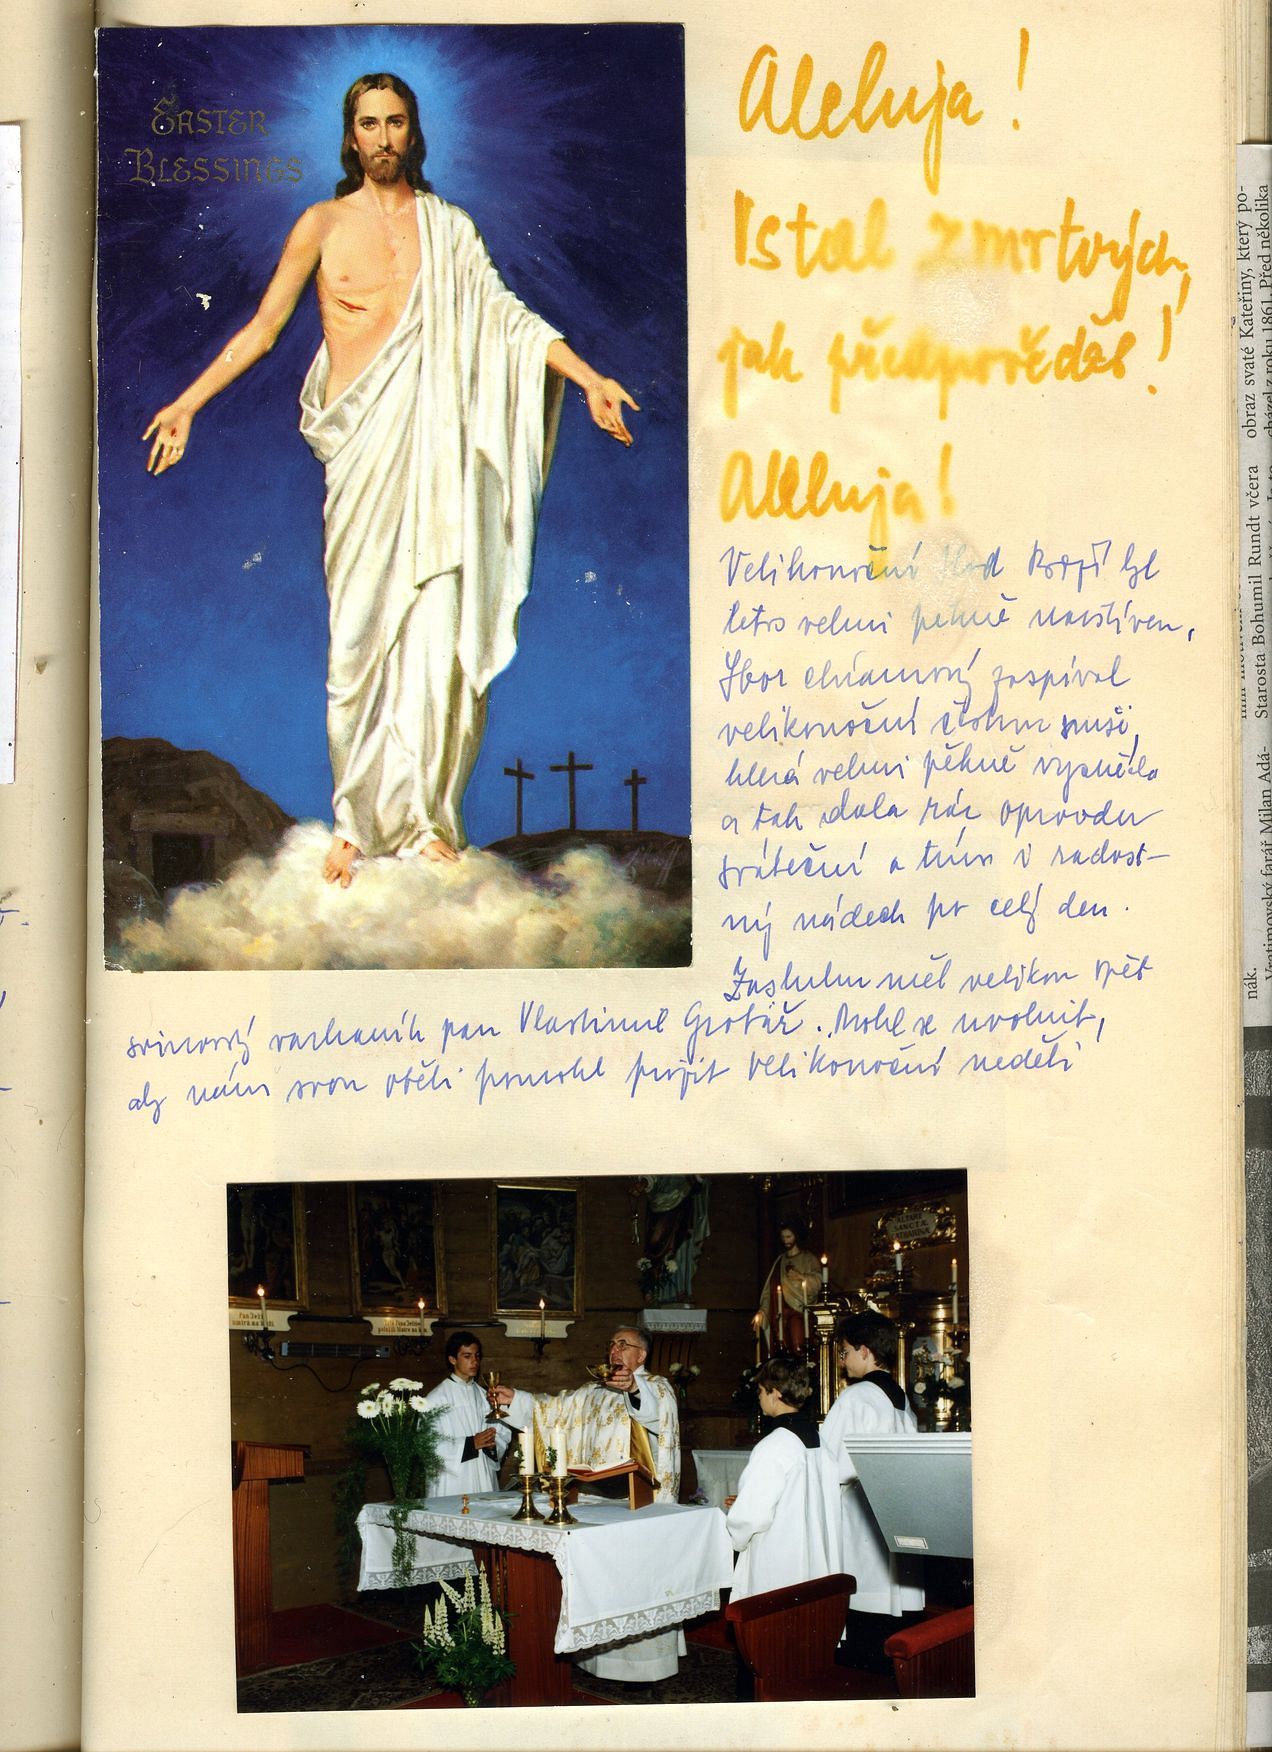 EASTER
BLESSINGS
Aleluja!
Vstal z mrtvých,
jak předpověděl!
Aleluja!
Velikonoční Hod Boží byl
letos velmi pěkně navštíven,
Sbor chrámový zaspíval
velikonoční českou mši,
která velmi pěkně vyzněla
a tak dala ráz opravdu
sváteční a tím i radost-
ný nádech po celý den.
Zásluhu měl velikou opět
svinovský varhaník pan Vlastimil Grotář. Mohl se uvolnit,
aby nám svou obětí pomohl prožít Velikonoční neděli
ALTARE
SANCTÆ
CATHARINÆ
Pan Ježíš
umírá na kříži
obraz svaté Kateřiny, který po-
cházel z roku 1861. Před několika
Starosta Bohumil Rundt včera
Vratimovský farář Milan Adá-
nák.